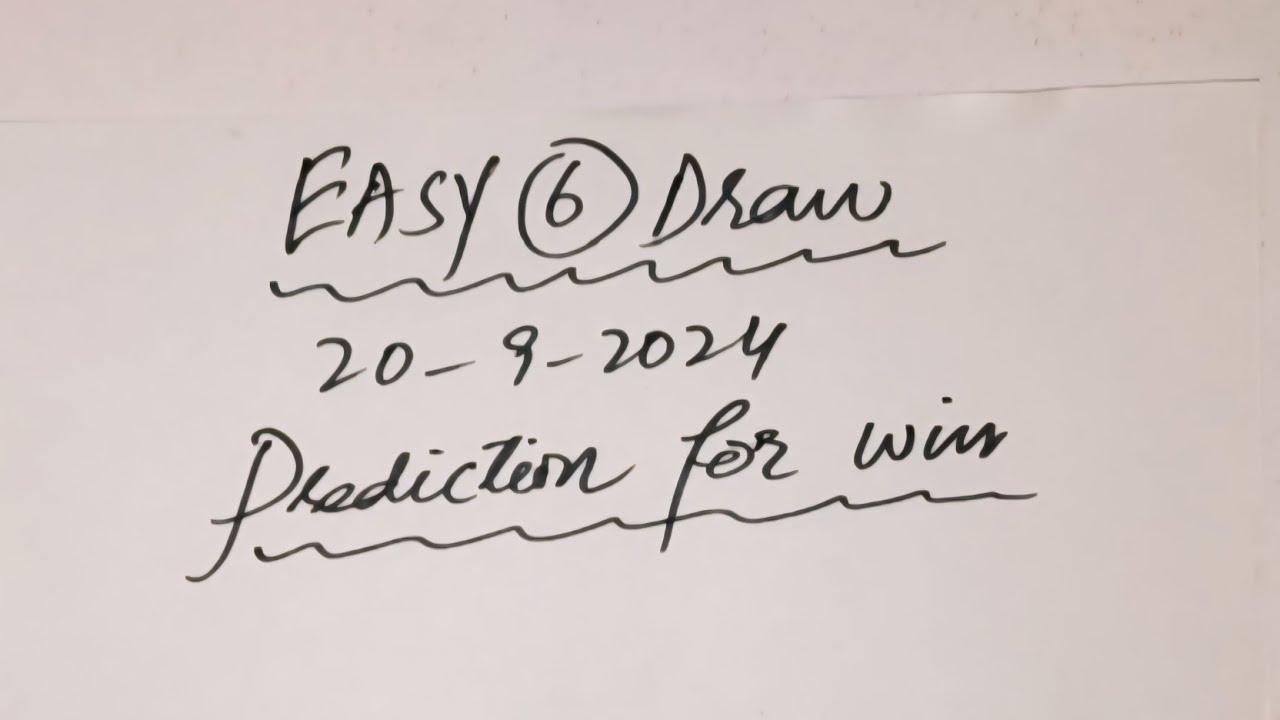 EASY 6 Draw
20-9-2024
Prediction for win